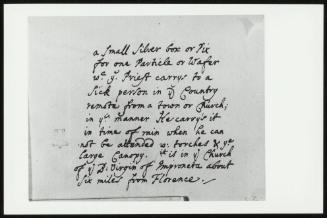 a Small Silver box or Pix
for one Particle or Wafer
wch ye. Priest carrys to a
Sick person in ye Country
remote from a town or Church;
in ys manner He carrys it
in time of rain when he can
not be attended w. torches & ye
large Canopy. it is in ye Church
of ye B. Virgin of Impruneta about
Six miles from Florence.